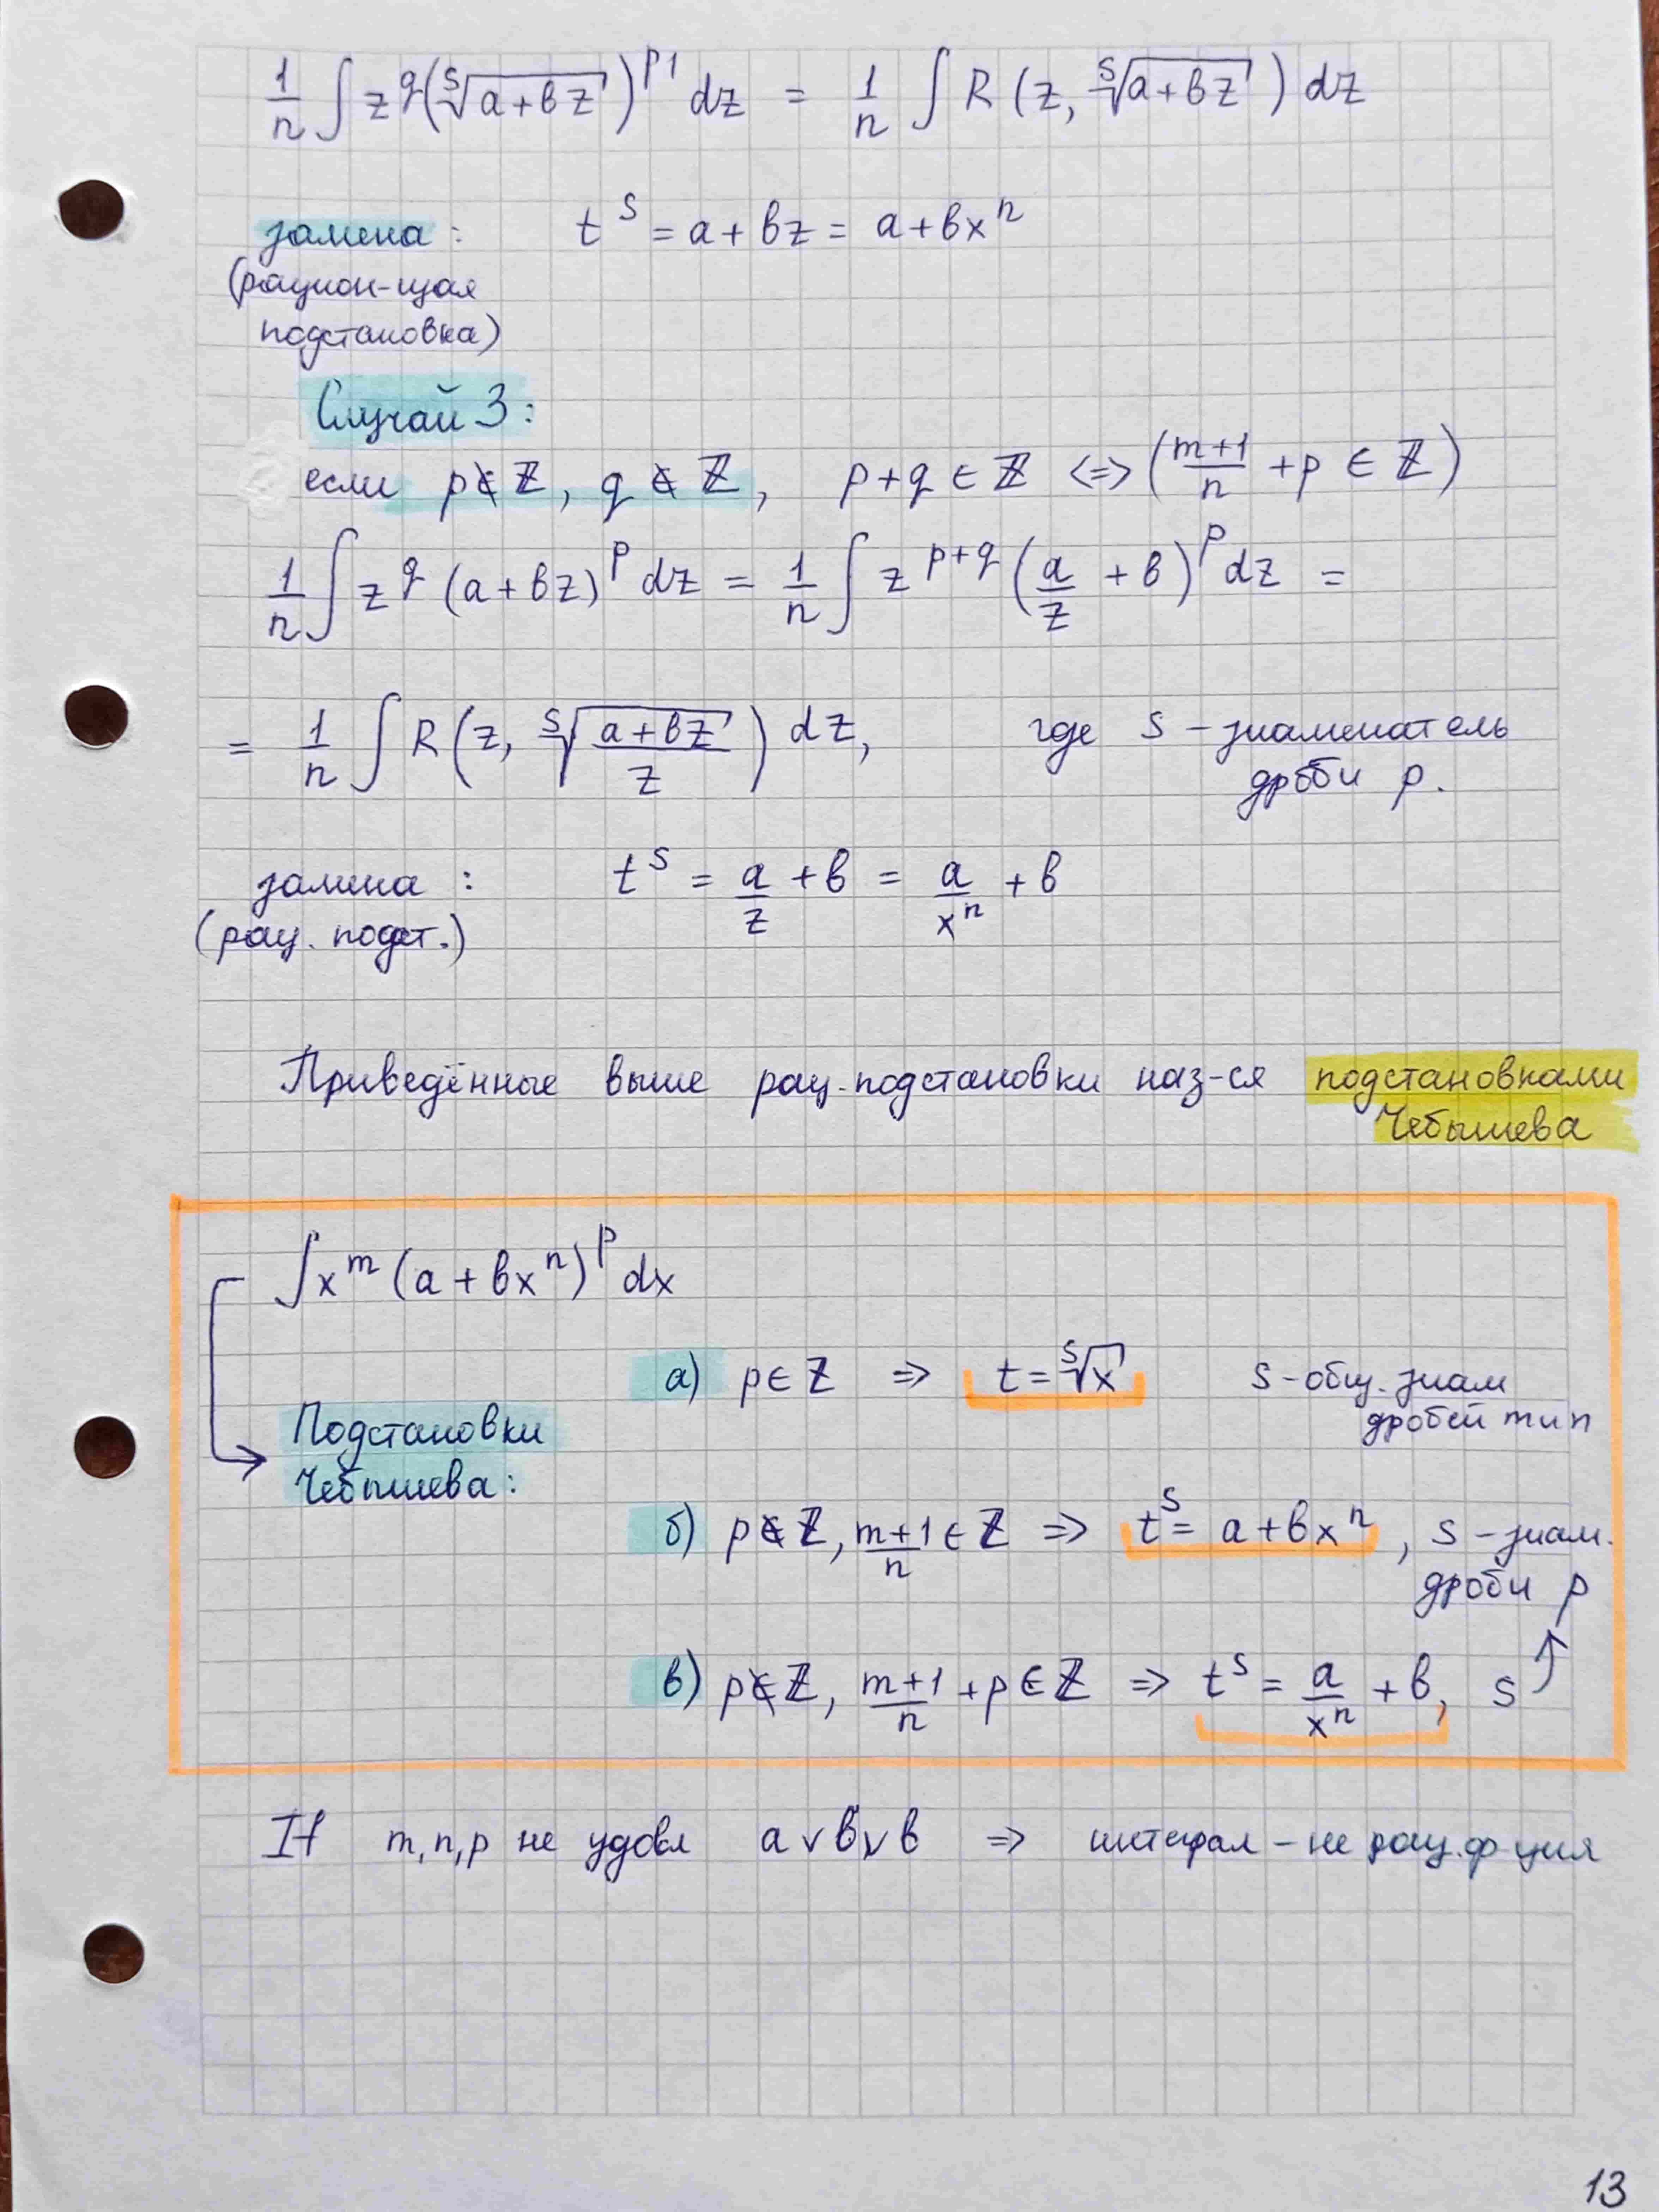 1/n ∫ z^q (ˢ√(a+bz))^p1 dz = 1/n ∫ R (z, ˢ√(a+bz)) dz
замена: t^s = a+bz = a+bx^n
(рацион-щая
подстановка)
Случай 3:
если p∉Z, q∉Z, p+q ∈ Z <=> (m+1/n + p ∈ Z)
1/n ∫ z^q (a+bz)^p dz = 1/n ∫ z^(p+q) (a/z + b)^p dz =
= 1/n ∫ R (z, ˢ√((a+bz)/z)) dz, где s – знаменатель
дроби p.
замена: t^s = a/z + b = a/x^n + b
(рац. подст.)
Приведённые выше рац. подстановки наз-ся подстановками
Чебышева
∫x^m (a + bx^n)^p dx
а) p∈Z => t = ˢ√x s-общ. знам
дробей m и n
Подстановки
Чебышева:
б) p∉Z, m+1/n ∈ Z => t^s = a+bx^n, s – знам.
дроби p
в) p∉Z, m+1/n + p∈Z => t^s = a/x^n + b, s
If m, n, p не удовл а∨б∨в => интеграл – не рац. ф-ция
13